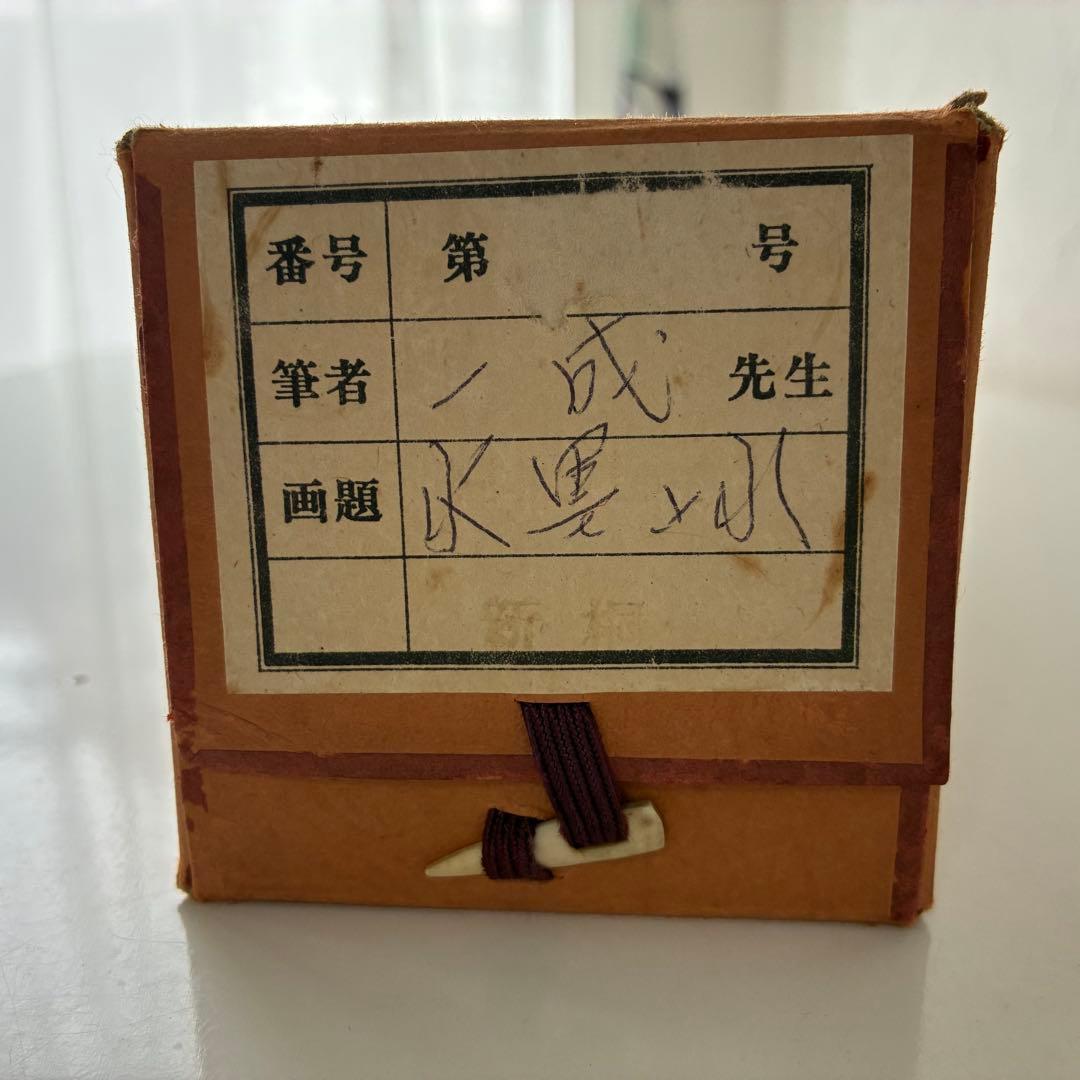 番号 第 号
筆者 一成 先生
画題 水墨山水